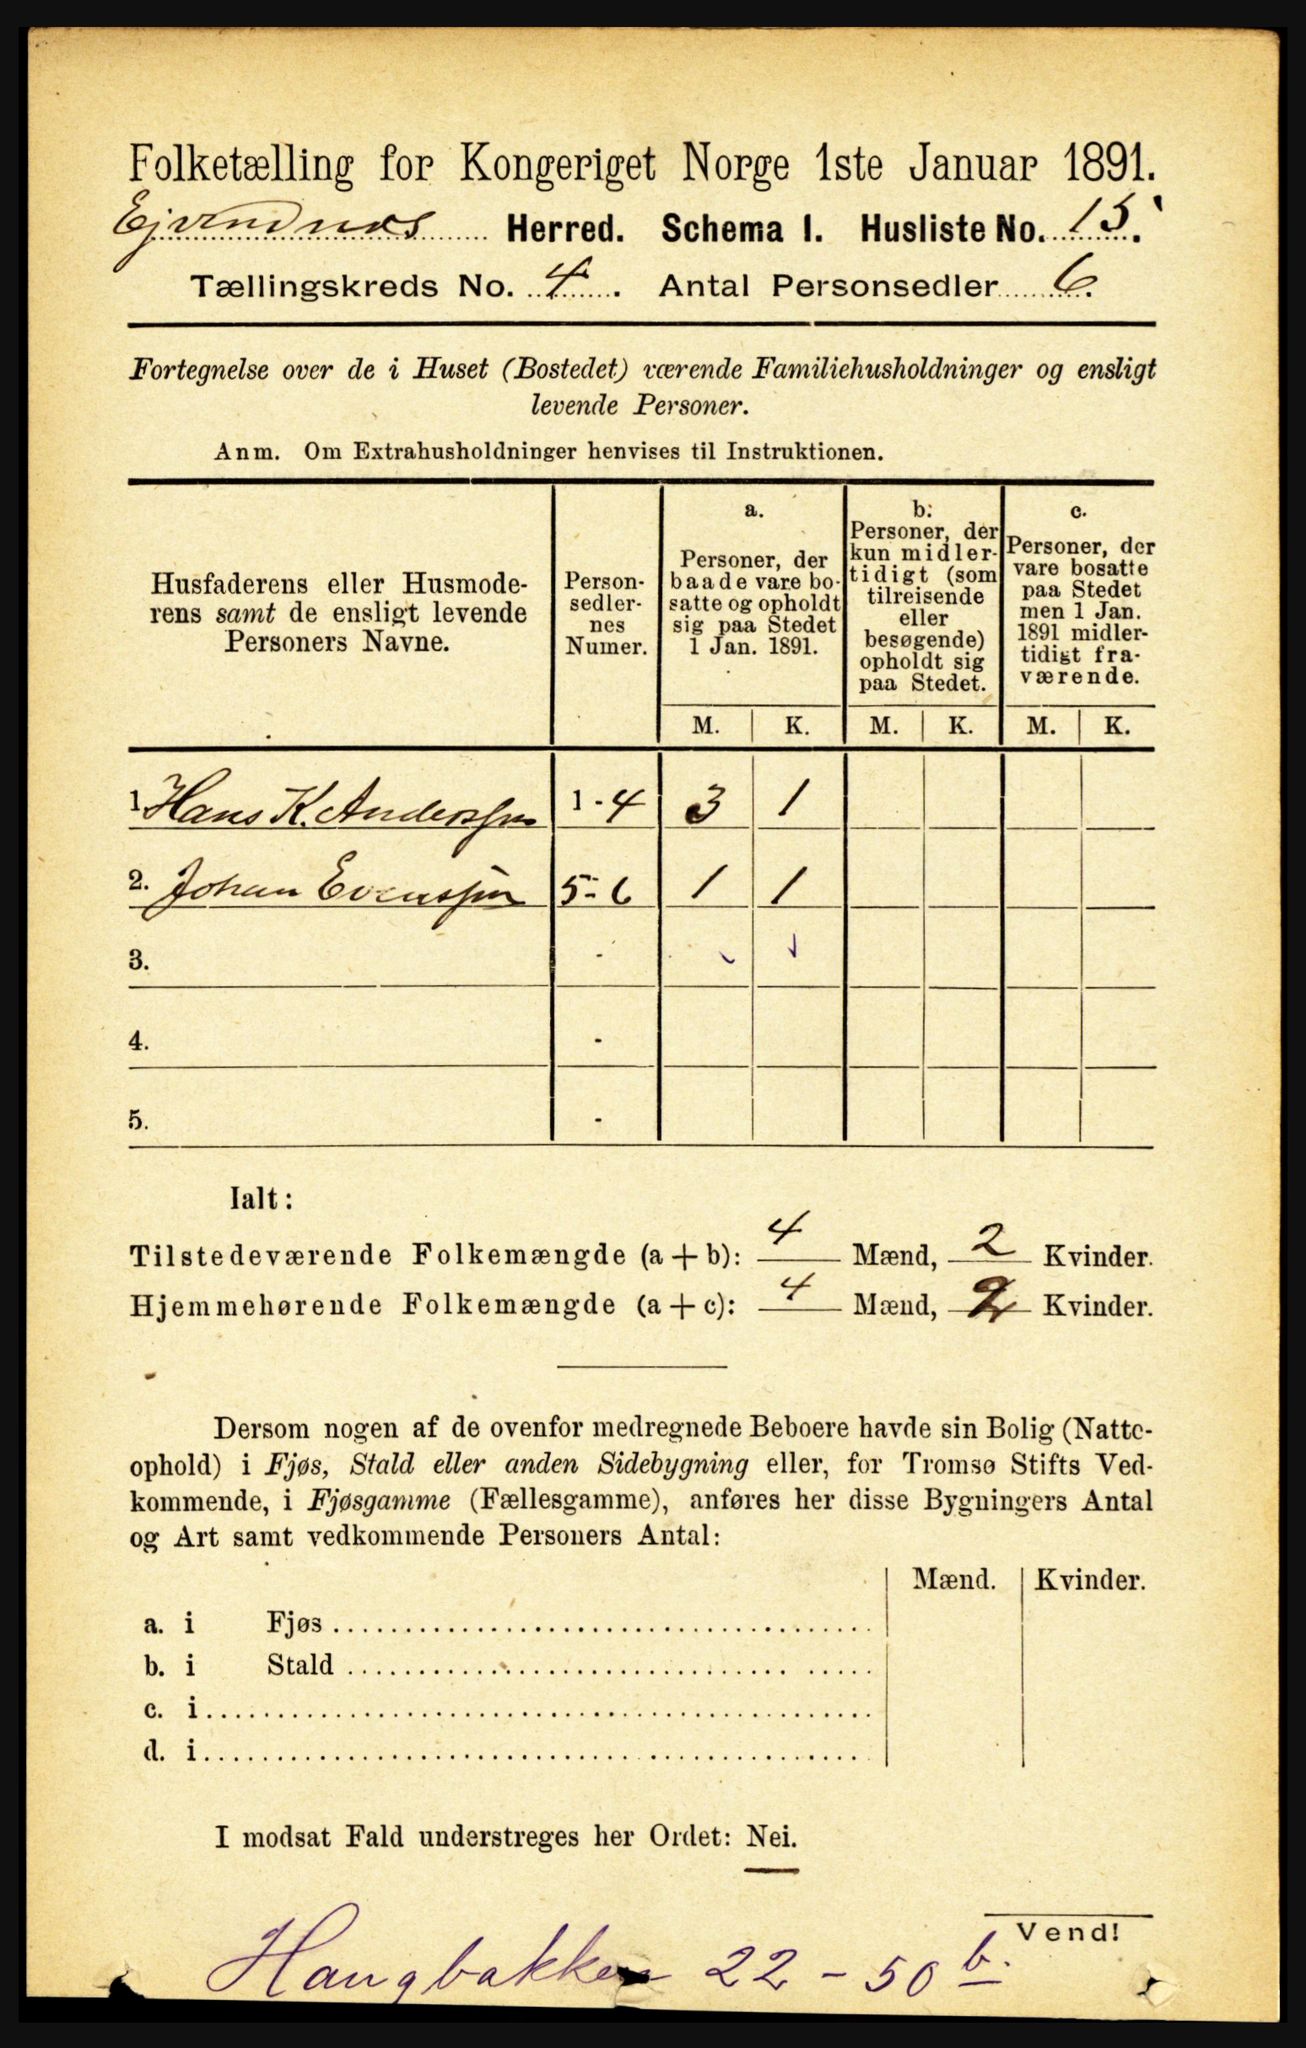 Folketælling for Kongeriget Norge 1ste Januar 1891.
Ejvindnæs Herred. Schema I. Husliste No. 15.
Tællingskreds No. 4. Antal Personsedler 6.
Fortegnelse over de i Huset (Bostedet) værende Familiehusholdninger og ensligt
levende Personer.
Anm. Om Extrahusholdninger henvises til Instruktionen.
Husfaderens eller Husmode-
rens samt de ensligt levende
Personers Navne.
Person-
sedler-
nes
Numer.
a.
Personer, der
baade vare bo-
satte og opholdt
sig paa Stedet
1 Jan. 1891.
b.
Personer, der
kun midler-
tidigt (som
tilreisende
eller
besøgende)
opholdt sig
paa Stedet.
c.
Personer, der
vare bosatte
paa Stedet
men 1 Jan.
1891 midler-
tidigt fra-
værende.
M. K. M. K. M. K.
1. Hans K. Anderssen 1 - 4 3 1
2. Johan Evenssen 5 - 6 1 1
3. -
4. -
5. -
Ialt:
Tilstedeværende Folkemængde (a + b): 4 Mænd, 2 Kvinder.
Hjemmehørende Folkemængde (a + c): 4 Mænd, 2 Kvinder.
Dersom nogen af de ovenfor medregnede Beboere havde sin Bolig (Natte-
ophold) i Fjøs, Stald eller anden Sidebygning eller, for Tromsø Stifts Ved-
kommende, i Fjøsgamme (Fællesgamme), anføres her disse Bygningers Antal
og Art samt vedkommende Personers Antal:
Mænd. Kvinder.
a. i Fjøs
b. i Stald
c. i
d. i
I modsat Fald understreges her Ordet: Nei.
Vend!
Haugbakken 22 - 50 b.